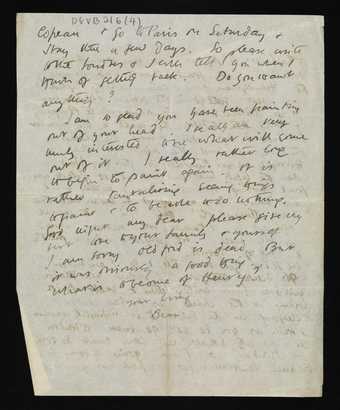 Copeau & go to Paris on Saturday &
stay there a few days. So please write
to London & I will tell you when I
know of getting back. Do you want
anything?
I am so glad you have been painting
out of your head. I really am very
much interested to see what will come
out of it. I really rather long
to begin to paint again. It is
rather tantalising seeing things
to paint & to be able to do nothing.
Good night my dear please give my
love to your family & yourself
I am sorry old is dead. But
it was obviously a good thing.
What has become of Henry?
your loving